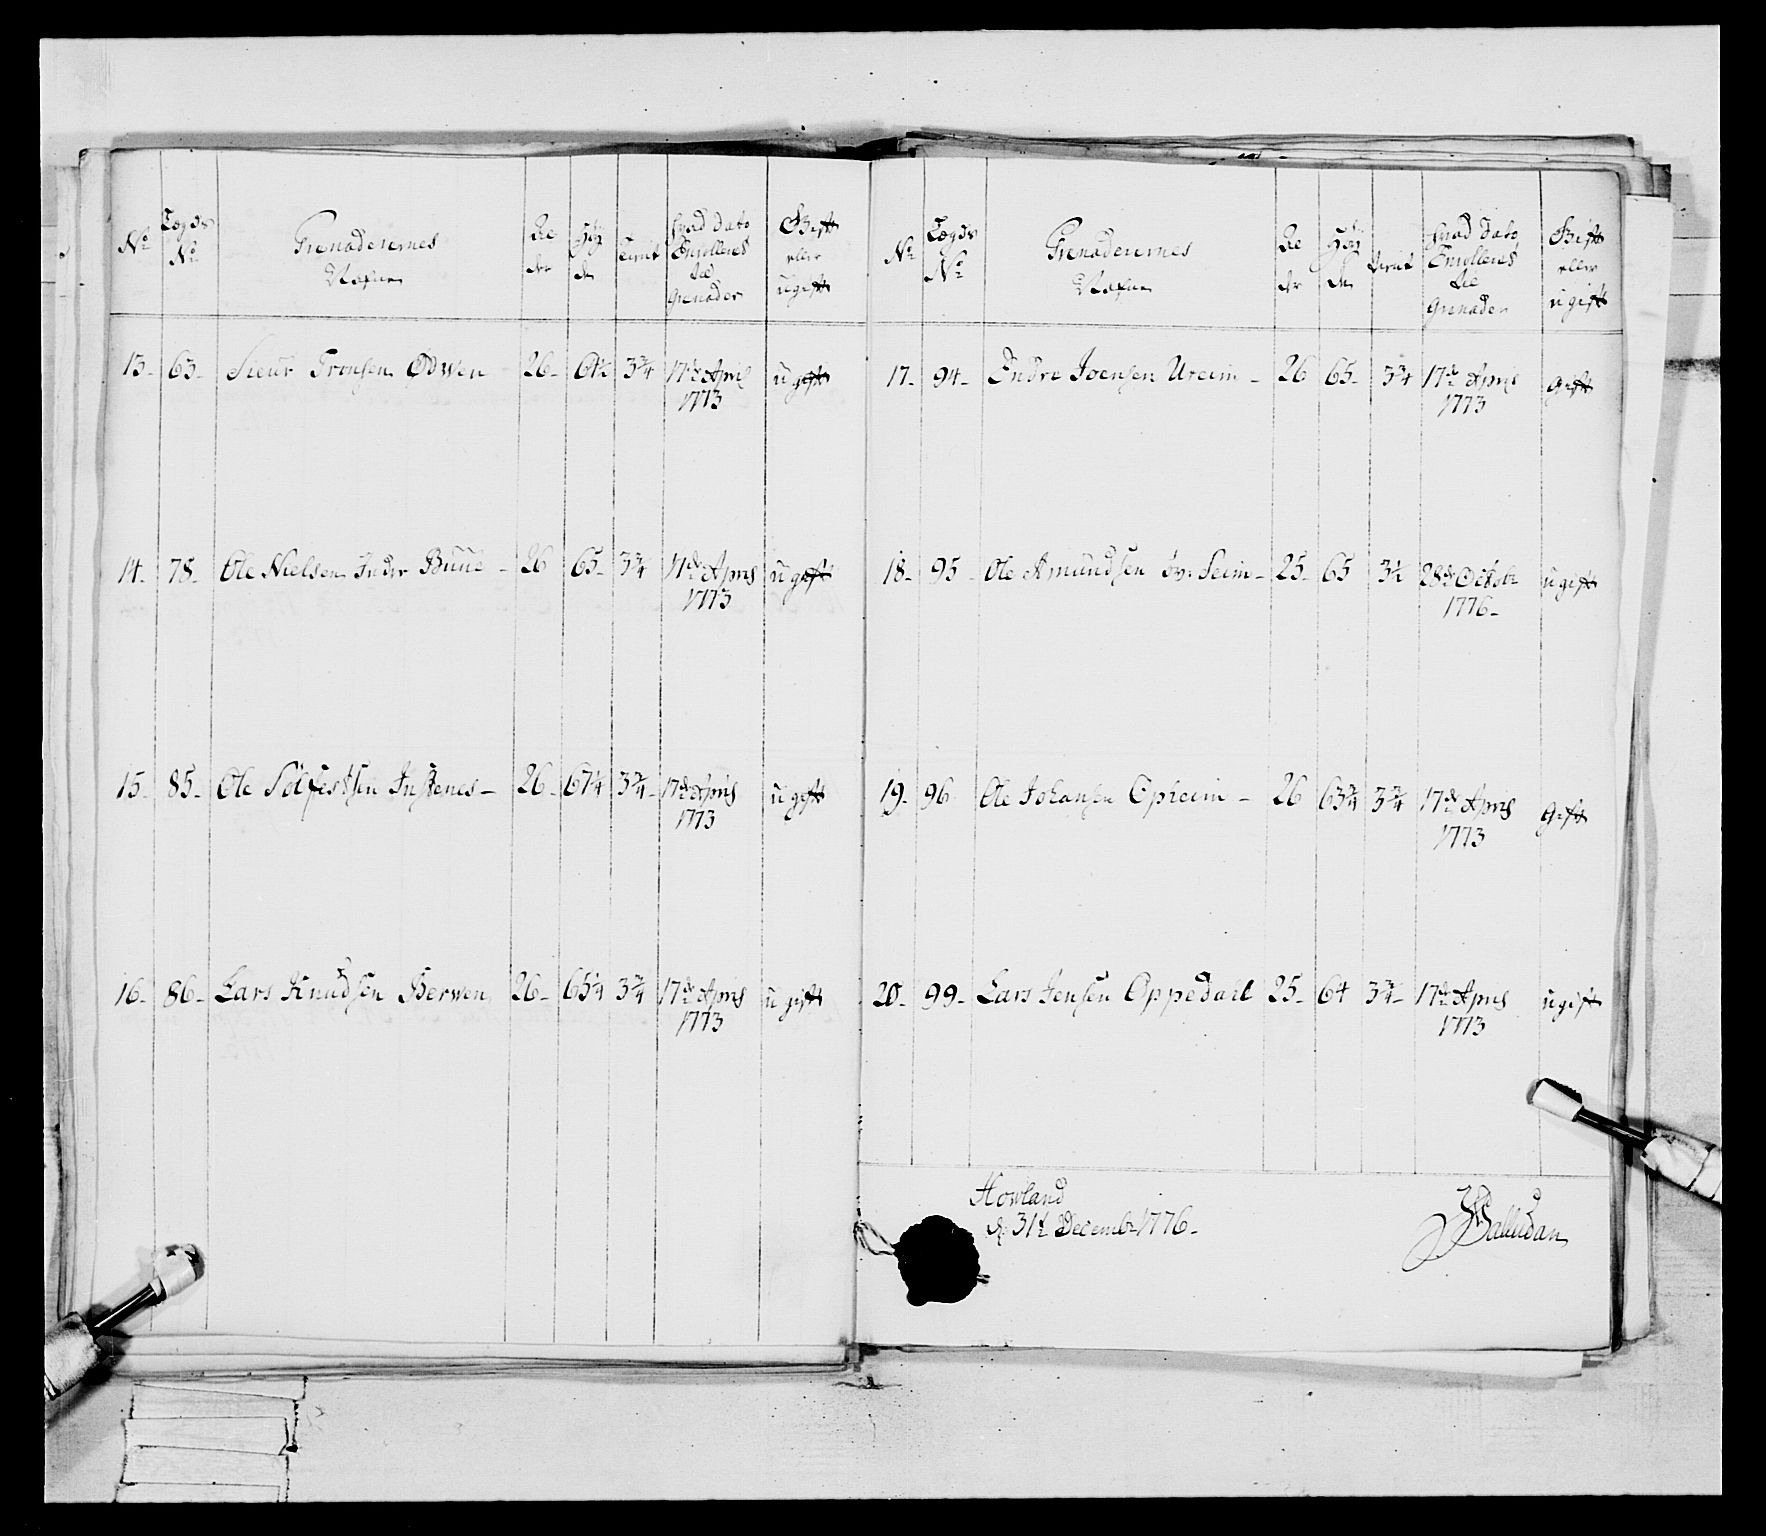 No
Lægds No
Grenaderernes Nafne
Alder
Höyden
Tient
Hvad Dato Enrolleret til Grenader
Gift eller ugift
13- 63- Sieur Tronsen Ødwen 26- 64½ 3¾ 17de April ugift
1773
14- 78- Ole Nielsen Indre Buue - 26 65- 3¾ 17de April ugift
1773
15- 85- Ole Sölfestsen Instenes- 26- 67¼ 3¾- 17de April ugift
1773
16- 86- Lars Knudsen Berwen 26- 65¼ 3¾ 17de April ugift
1773
No
Lægds No
Grenaderernes Nafne
Alder
Höyden
Tient
Hvad Dato Enrolleret til Grenader
Gift eller ugift
17- 94- Endre Joensen Ureim - 26 65- 3¾ 17de April gift
1773
18- 95- Ole Amundsen öv: Seim- 25- 65 3½ 28de Octobr ugift
1776-
19- 96 Ole Johansen Opheim - 26 63¾ 3¾ 17de April gift
1773
20- 99- Lars Jensen Oppedahl 25- 64 3¾- 17de April ugift
1773
Howland
d: 31te Decembr 1776-
Palludan